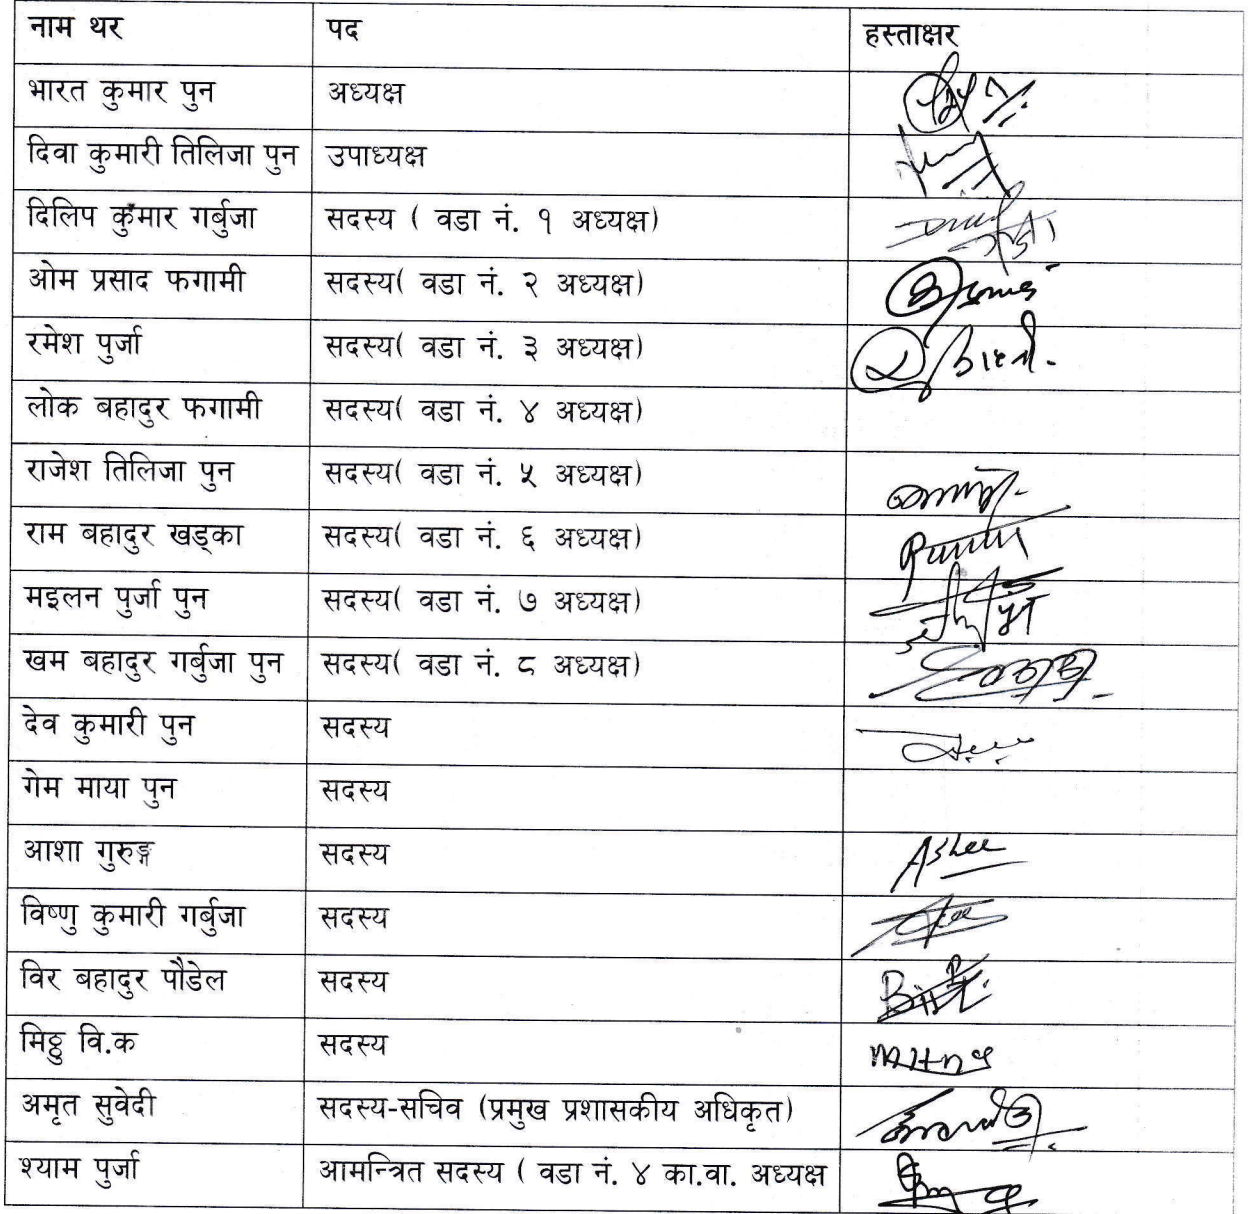 नाम थर पद हस्ताक्षर
भारत कुमार पुन अध्यक्ष
दिवा कुमारी तिलिजा पुन उपाध्यक्ष
दिलिप कुमार गर्बुजा सदस्य ( वडा नं. १ अध्यक्ष)
ओम प्रसाद फगामी सदस्य( वडा नं. २ अध्यक्ष)
रमेश पुर्जा सदस्य( वडा नं. ३ अध्यक्ष)
लोक बहादुर फगामी सदस्य( वडा नं. ४ अध्यक्ष)
राजेश तिलिजा पुन सदस्य( वडा नं. ५ अध्यक्ष)
राम बहादुर खड्का सदस्य( वडा नं. ६ अध्यक्ष)
मइलन पुर्जा पुन सदस्य( वडा नं. ७ अध्यक्ष)
खम बहादुर गर्बुजा पुन सदस्य( वडा नं. ८ अध्यक्ष)
देव कुमारी पुन सदस्य
गेम माया पुन सदस्य
आशा गुरुङ्ग सदस्य
विष्णु कुमारी गर्बुजा सदस्य
विर बहादुर पौडेल सदस्य
मिठ्ठु वि.क सदस्य
अमृत सुवेदी सदस्य-सचिव (प्रमुख प्रशासकीय अधिकृत)
श्याम पुर्जा आमन्त्रित सदस्य ( वडा नं. ४ का.वा. अध्यक्ष